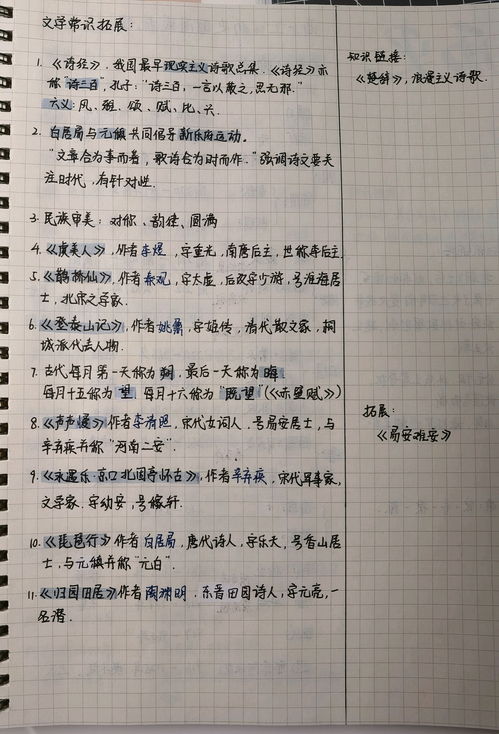 文学常识拓展：
1. 《诗经》，我国最早现实主义诗歌总集.《诗经》亦
称"诗三百"，孔子："诗三百，一言以蔽之，思无邪."
六义：风、雅、颂、赋、比、兴.
2. 白居易与元稹共同倡导新乐府运动。
"文章合为事而著，歌诗合为时而作."强调诗文要关
注时代，有针对性.
3. 民族审美：对称、韵律、圆满
4. 《虞美人》，作者李煜，字重光，南唐后主，世称李后主.
5. 《鹊桥仙》，作者秦观，字太虚，后改字少游，号淮海居
士，北宋文学家.
6. 《登泰山记》，作者姚鼐，字姬传，清代散文家，桐
城派代表人物.
7. 古代每月第一天称为朔，最后一天称为晦
每月十五称为望 每月十六称为"既望"(《赤壁赋》)
8. 《声声慢》作者李清照，宋代女词人，号易安居士，与
辛弃疾并称"济南二安".
9. 《永遇乐·京口北固亭怀古》，作者辛弃疾，宋代军事家，
文学家.字幼安，号稼轩.
10. 《琵琶行》作者白居易，唐代诗人，字乐天，号香山居
士，与元稹并称"元白".
11. 《归园田居》作者陶渊明.东晋田园诗人，字元亮，一
名潜.
知识链接：
《楚辞》，浪漫主义诗歌.
拓展：
《易安难安》